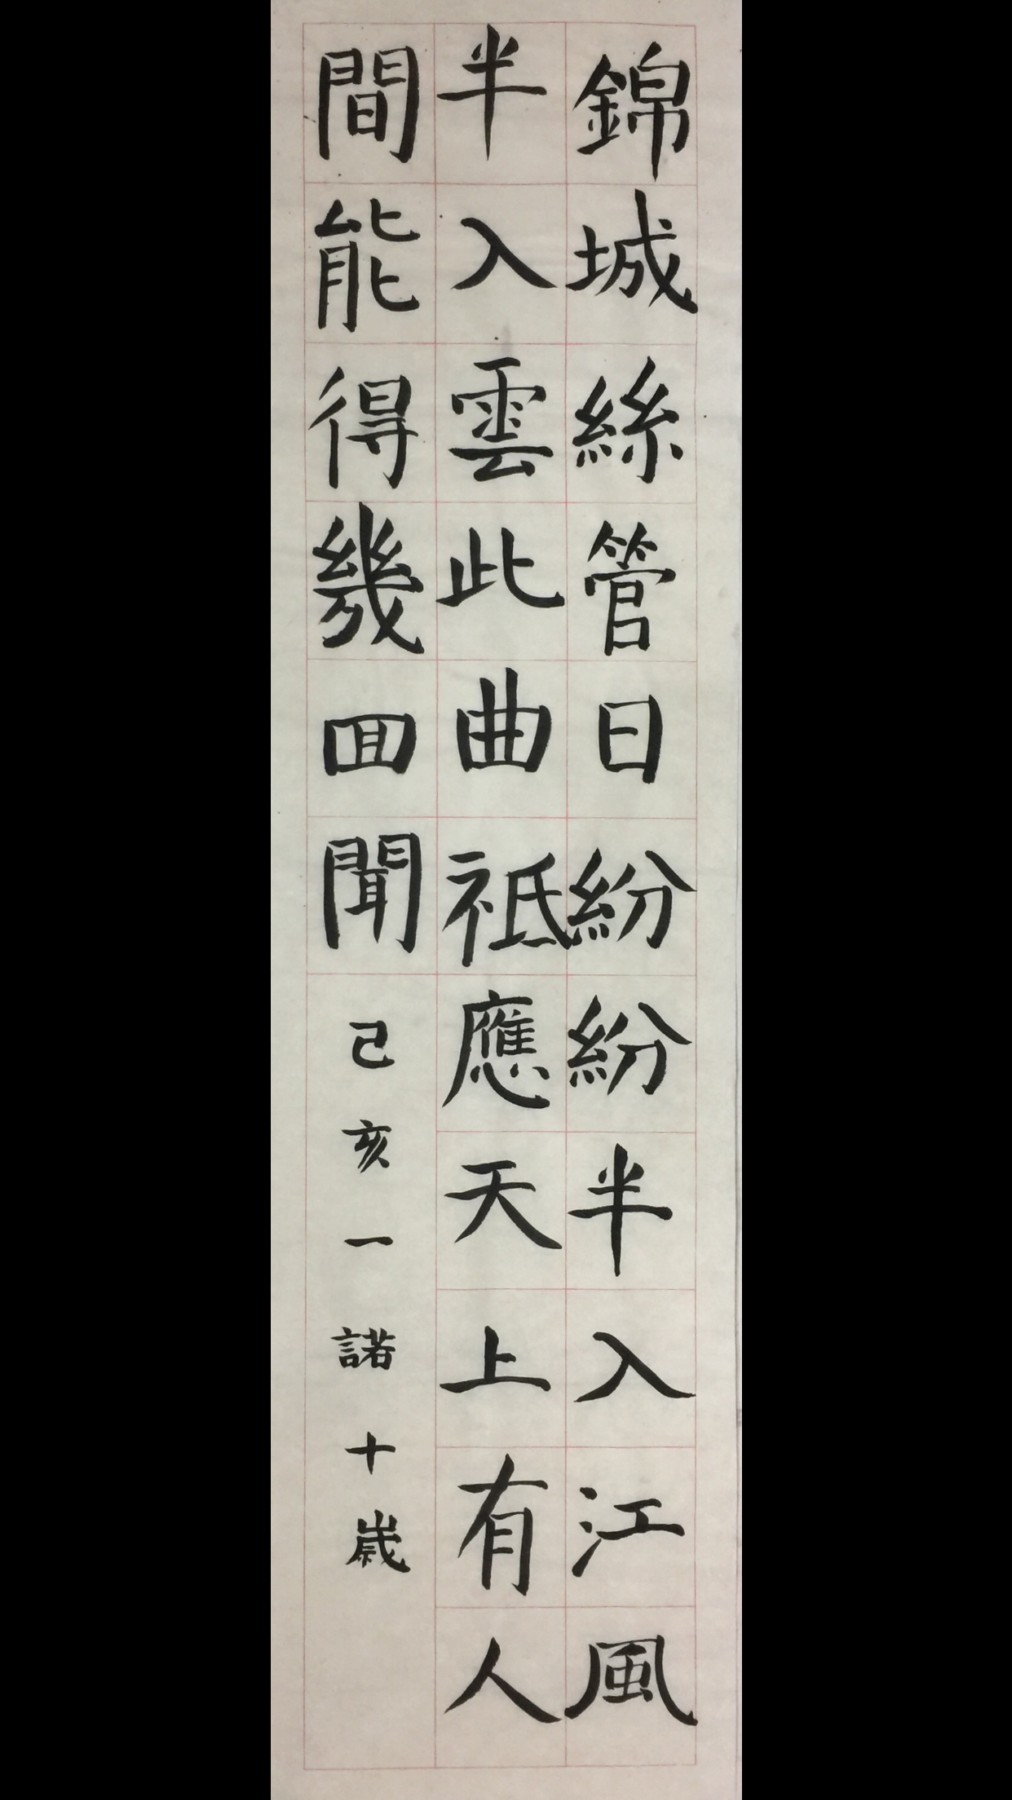 錦城絲管日紛紛半入江風
半入雲此曲祗應天上有人
間能得幾回聞
己亥一諾十歲